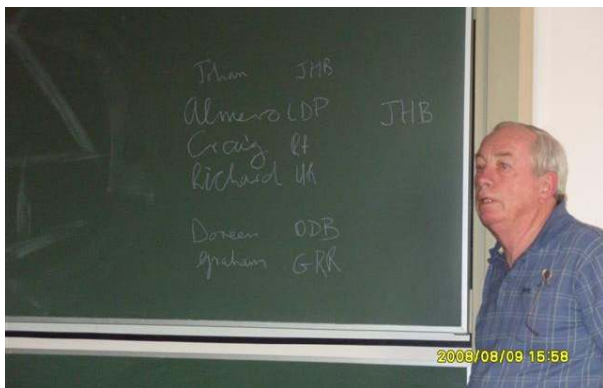 Johan JHB
Almero LDP JHB
Craig Pt
Richard UK
Doreen DDB
Graham GRR
2008/08/09 15:58